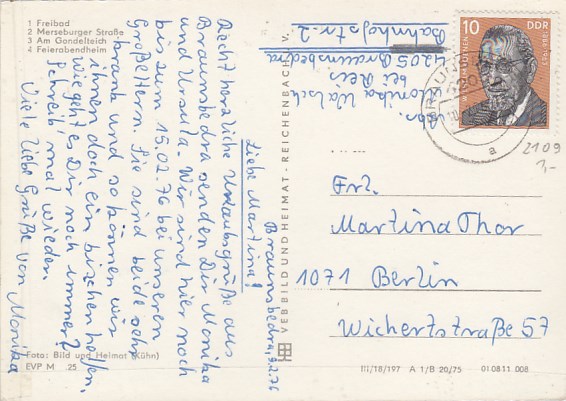 1 Freibad
2 Merseburger Straße
3 Am Gondelteich
4 Feierabendheim
Braunsbedra, 9.2.76
Liebe Martina!
Recht herzliche Urlaubsgrüße aus
Braunsbedra senden Dir Monika
und Ursula. Wir sind hier noch
bis zum 15.02.76 bei unseren
Großeltern. Sie sind beide sehr
krank und so können wir
ihnen doch ein bischen helfen.
Wie geht's Dir noch immer?
Schreib' mal wieden.
Viele liebe Grüße von Monika
Foto: Bild und Heimat (Kühn)
EVP M 25
VEB BILD UND HEIMAT · REICHENBACH i. V.
Monika Walsch
bei Reis
4205 Braunsbedra
Bahnhofstr. 2
10 DDR
a
2109
1,-
Frl.
Martina Thor
1071 Berlin
Wichertstraße 57
III/18/197 A 1/B 20/75 01 08 11 008